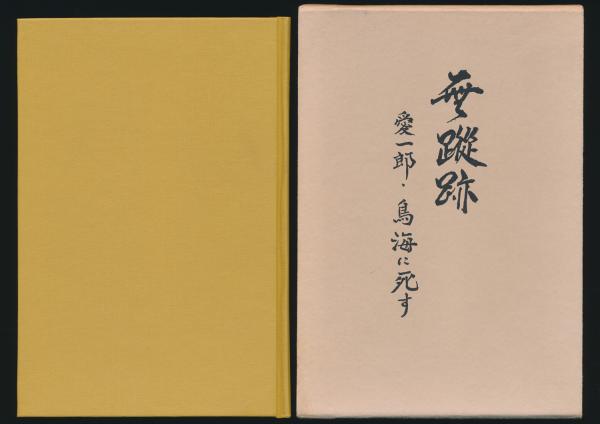 無蹤跡
愛一郎・鳥海に死す